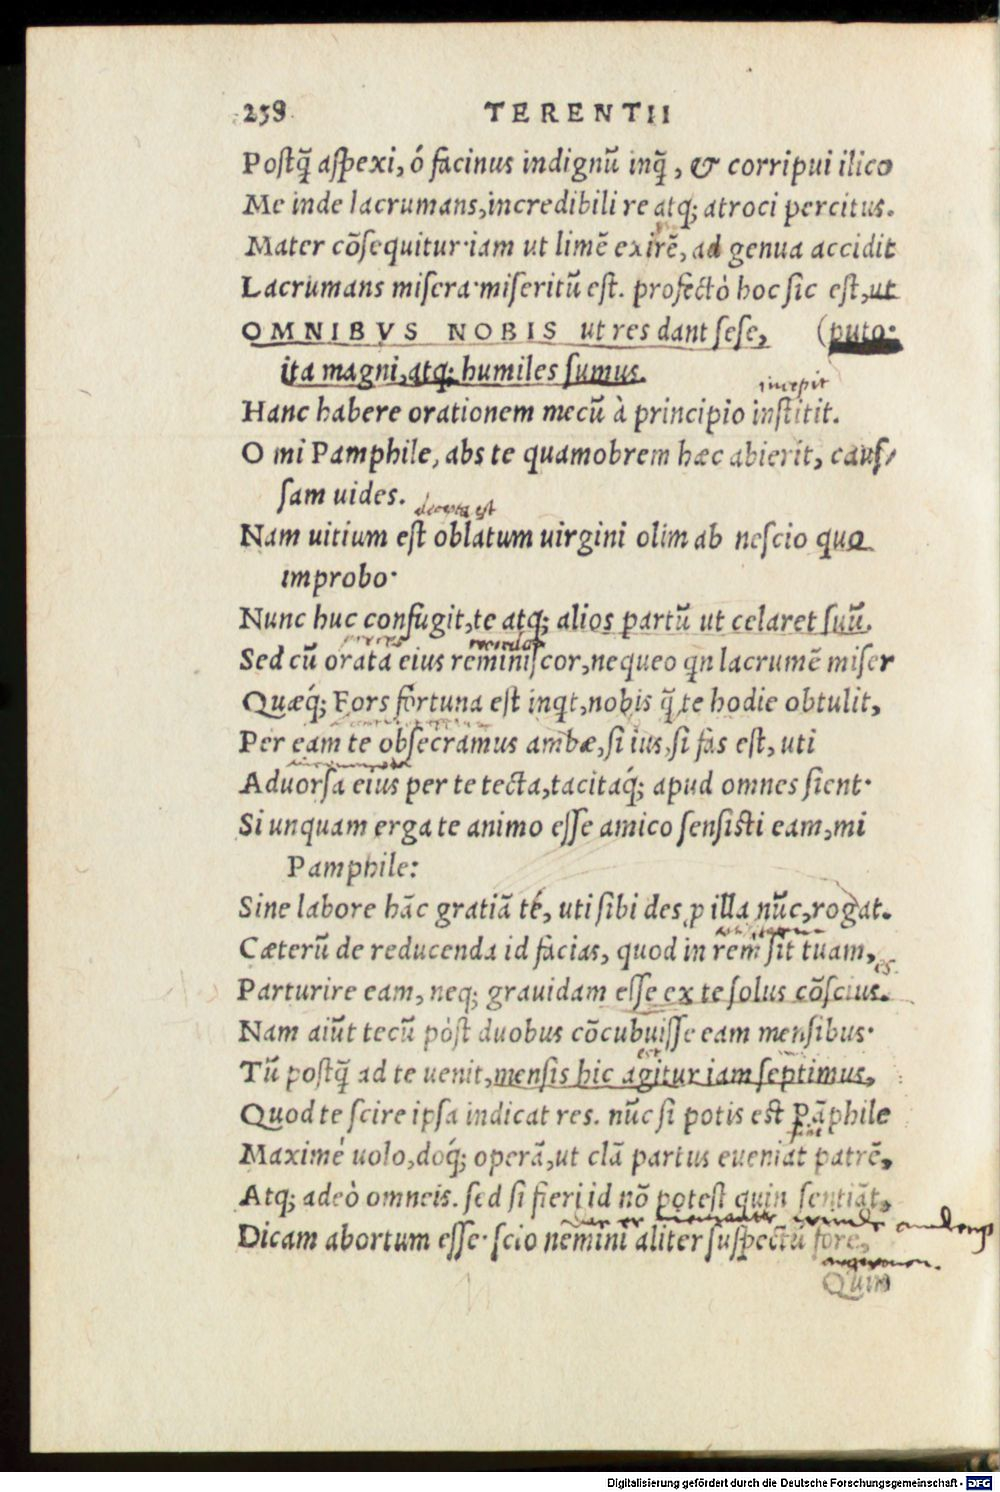 238 TERENTII
Postq̃ aspexi, ó facinus indignũ inq̃, & corripui ilico
Me inde lacrumans, incredibili re atq; atroci percitus.
Mater cõsequitur· iam ut limẽ exirẽ, ad genua accidit
Lacrumans misera· miseritũ est. profectò hoc sic est, ut
OMNIBVS NOBIS ut res dant sese, (puto·
ita magni, atq; humiles sumus.
incepit
Hanc habere orationem mecũ à principio institit.
O mi Pamphile, abs te quamobrem hæc abierit, caus/
sam uides.
Nam uitium est oblatum uirgini olim ab nescio quo
improbo·
Nunc huc confugit, te atq; alios partũ ut celaret suũ.
Sed cũ orata eius reminiscor, nequeo qn lacrumẽ miser
Quæq́; Fors fortuna est inqt, nobis q̃ te hodie obtulit,
Per eam te obsecramus ambæ, si ius, si fas est, uti
Aduorsa eius per te tecta, tacitaq́; apud omnes sient·
Si unquam erga te animo esse amico sensisti eam, mi
Pamphile:
Sine labore hãc gratiã té, uti sibi des p illa nũc, rogat.
Cæterũ de reducenda id facias, quod in rem sit tuam,
es.
Parturire eam, neq; grauidam esse ex te solus cõscius.
Nam aiũt tecũ pòst duobus cõcubuisse eam mensibus·
est
Tũ postq̃ ad te uenit, mensis hic agitur iam septimus,
Quod te scire ipsa indicat res. nũc si potis est Pãphile
Maximé uolo, doq́; operã, ut clã partus eueniat patrẽ,
Atq; adeò omneis. sed si fieri id nõ potest quin sentiãt,
Dicam abortum esse· scio nemini aliter suspectũ fore,
Quin
Digitalisierung gefördert durch die Deutsche Forschungsgemeinschaft - DFG